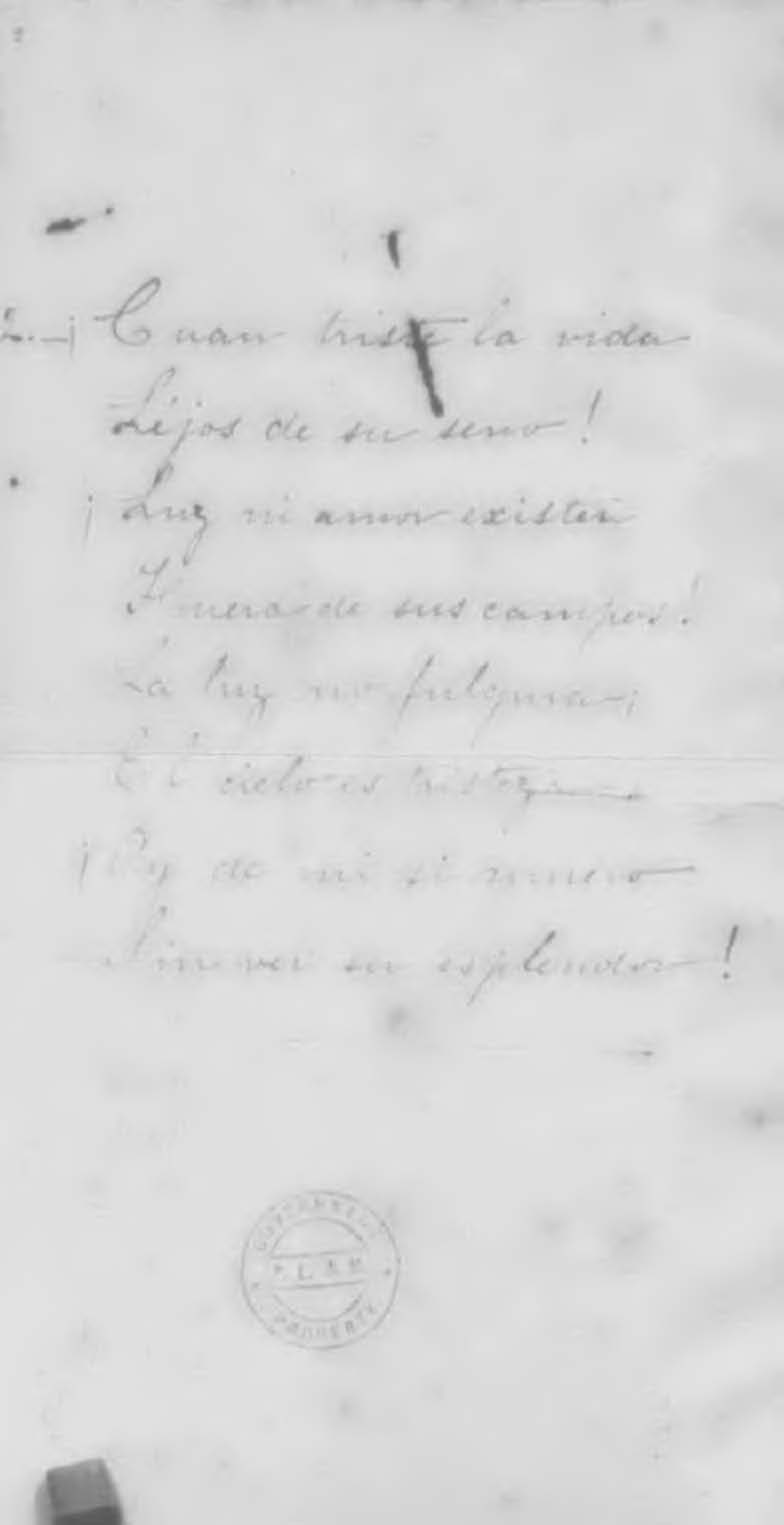 2.—¡Cuan triste la vida
Léjos de su seno!
¡Luz ni amor existen
Fuera de sus campos!
La luz no fulgura;
El cielo es tristeza
¡Ay de mi si muero
Sin ver su esplendor!
GOVERNMENT
P.L.&M.
PROPERTY